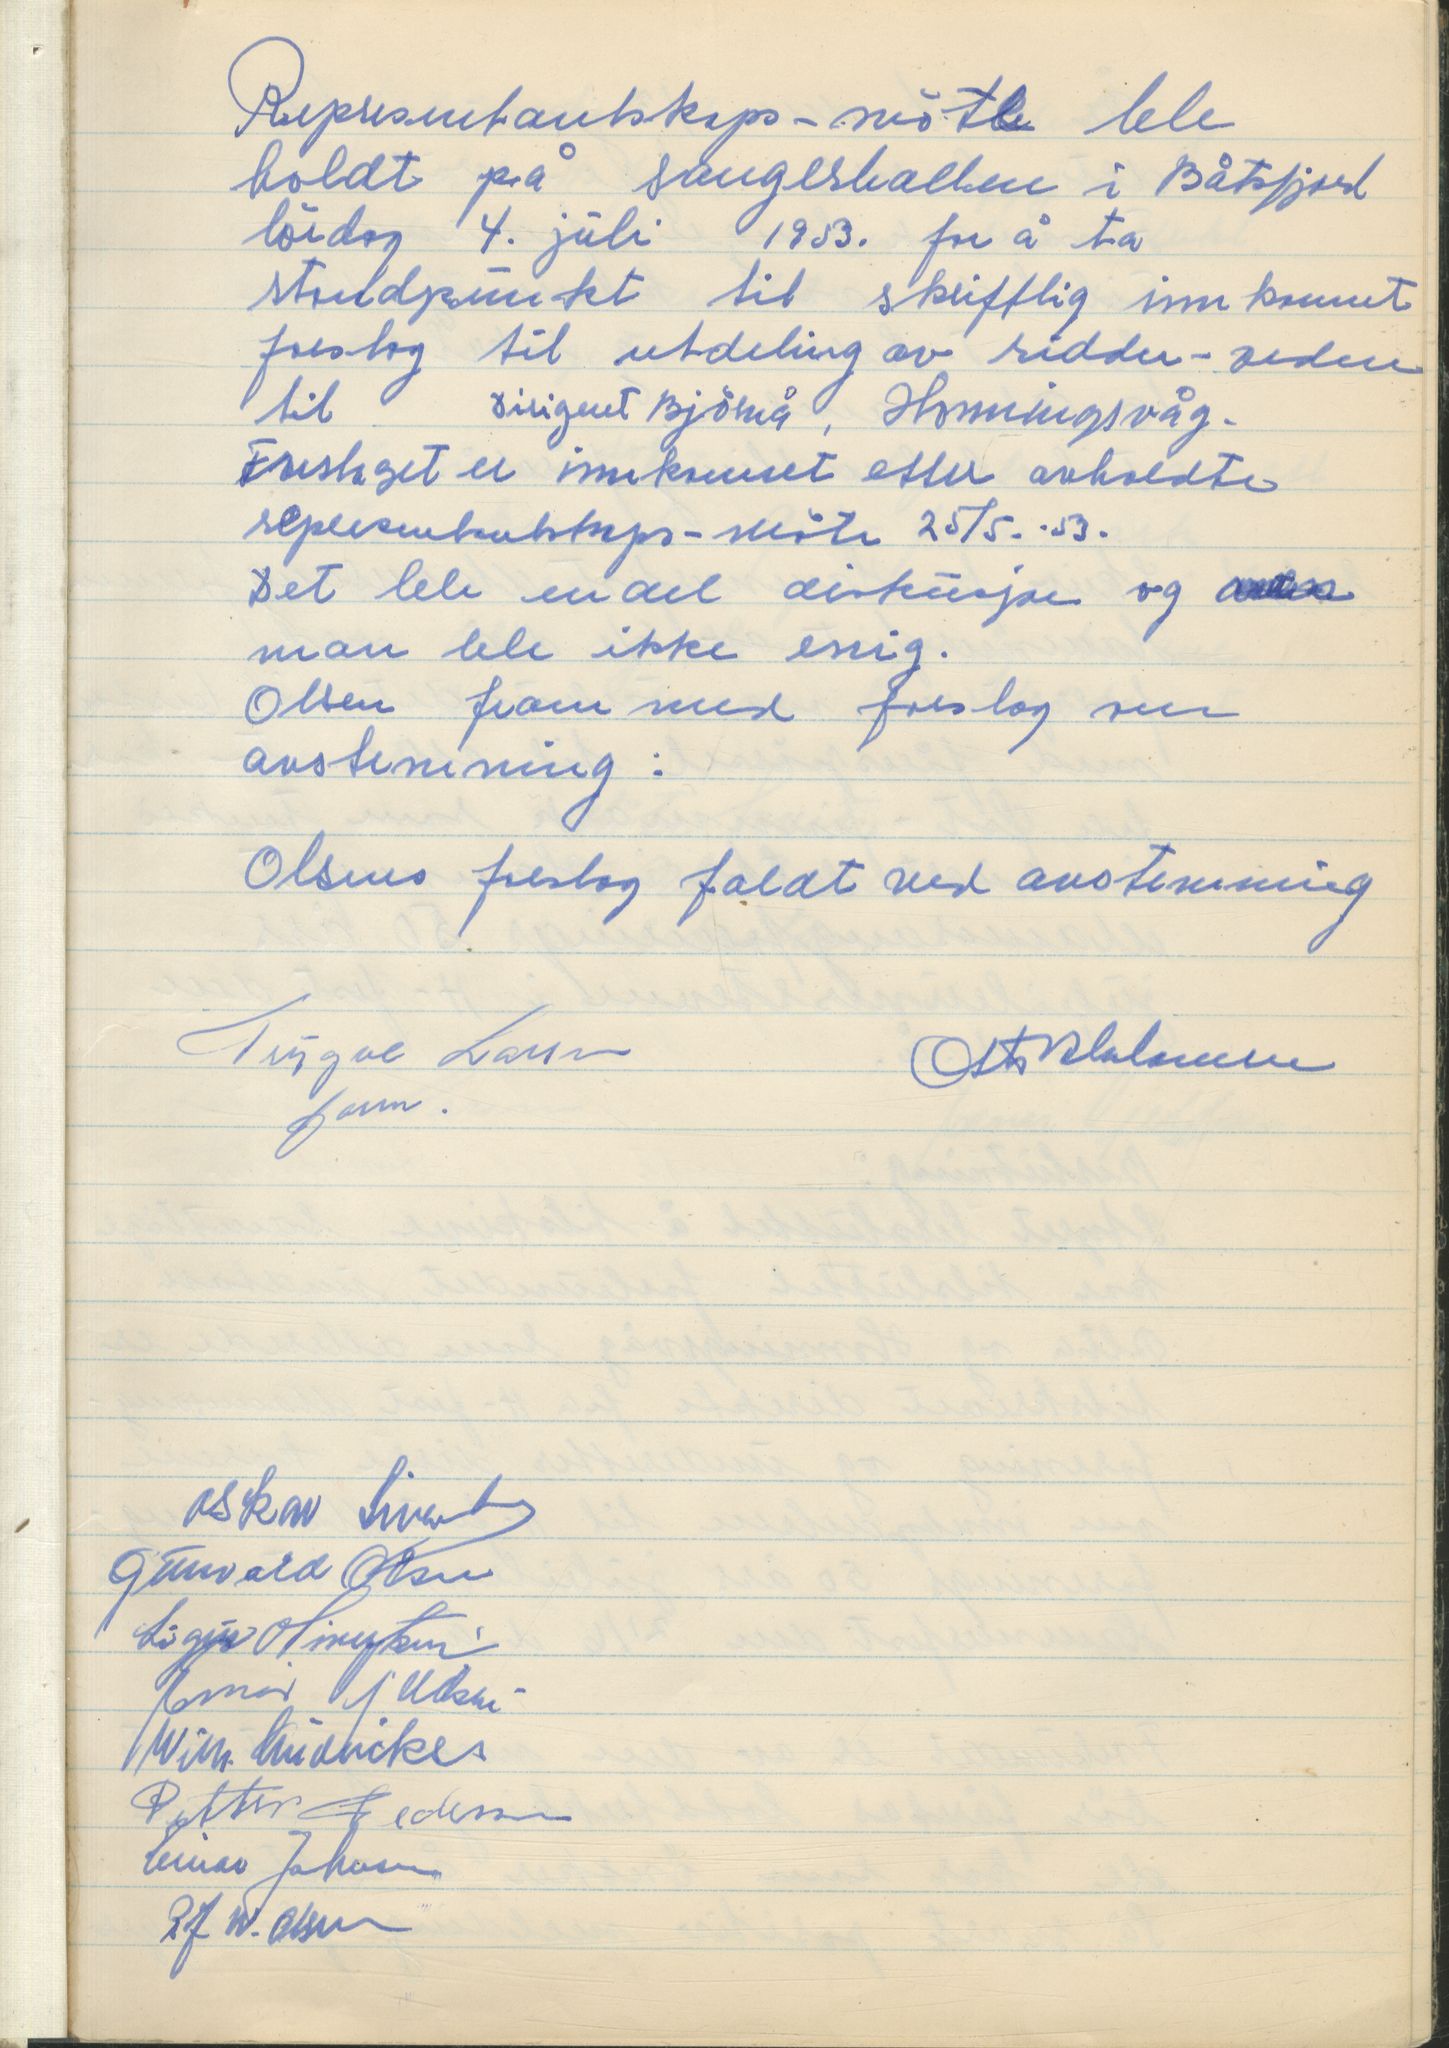 Representantskaps-möte ble
holdt på sangerhallen i Båtsfjord
lördag 4. juli 1953. for å ta
standpunkt til skriftlig innkommet
forslag til utdeling av ridder-orden
til Dirigent Björnå, Honningsvåg.
Forslaget er innkommet etter avholdte
representantskaps-möte 25/5.-53.
Det ble endel diskusjon og
man ble ikke enig.
Olsen fram med forslag om
avstemming:
Olsens forslag faldt ved avstemming
Trygve Larsen
form.
Oskar
Gunvald Olsen
Petter Pedersen
Einar Johnsen
W. Olsen